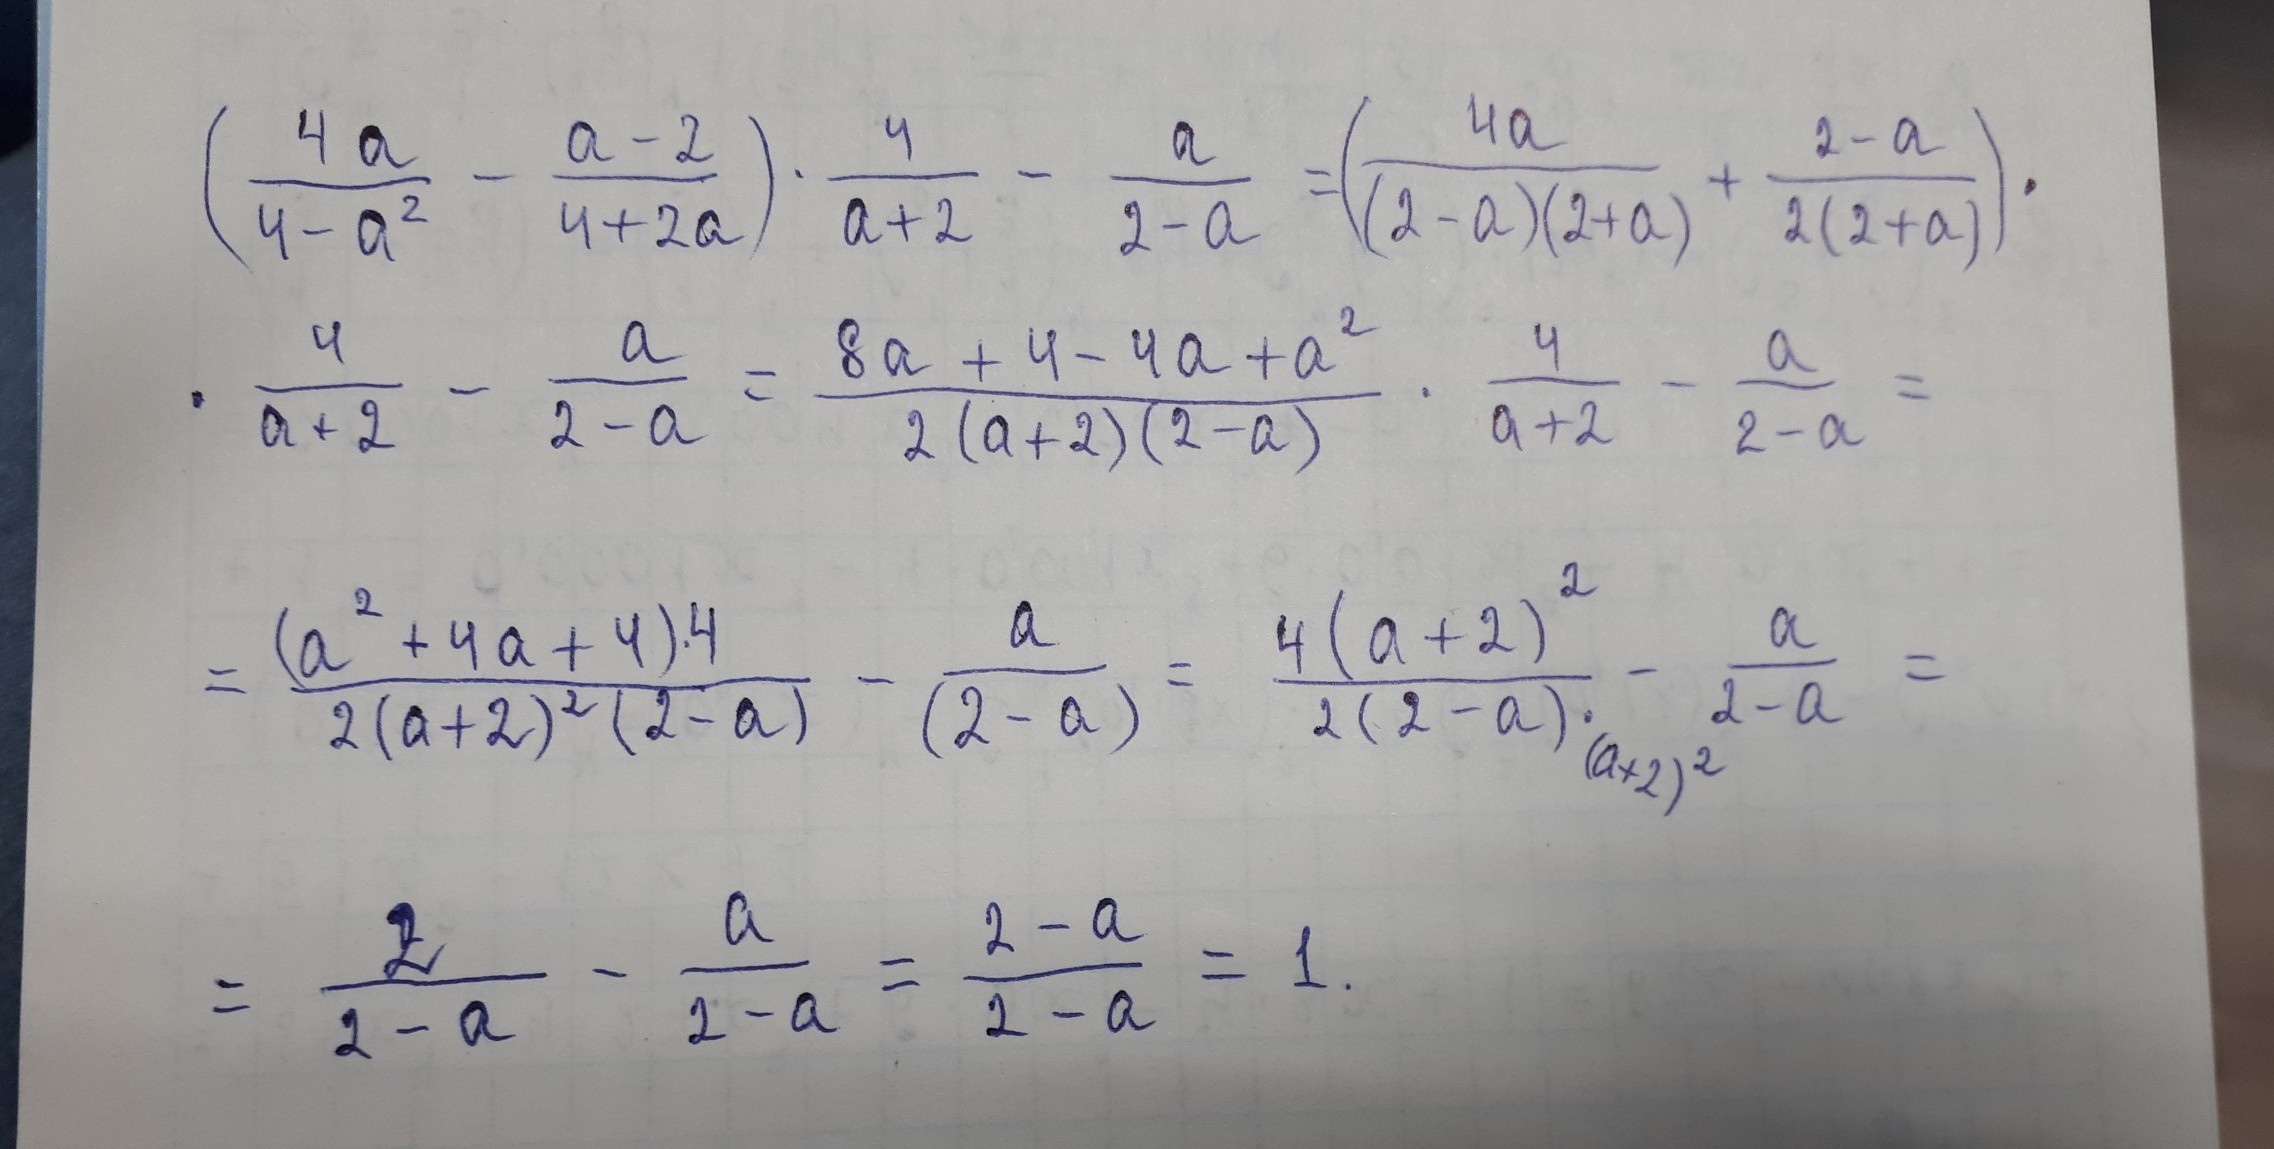 (4a/(4-a²) - (a-2)/(4+2a)) · 4/(a+2) - a/(2-a) = (4a/((2-a)(2+a)) + (2-a)/(2(2+a))) ·
· 4/(a+2) - a/(2-a) = (8a+4-4a+a²)/(2(a+2)(2-a)) · 4/(a+2) - a/(2-a) =
= ((a²+4a+4)·4)/(2(a+2)²(2-a)) - a/((2-a)) = (4(a+2)²)/(2(2-a)·(a+2)²) - a/(2-a) =
= 2/(2-a) - a/(2-a) = (2-a)/(2-a) = 1.